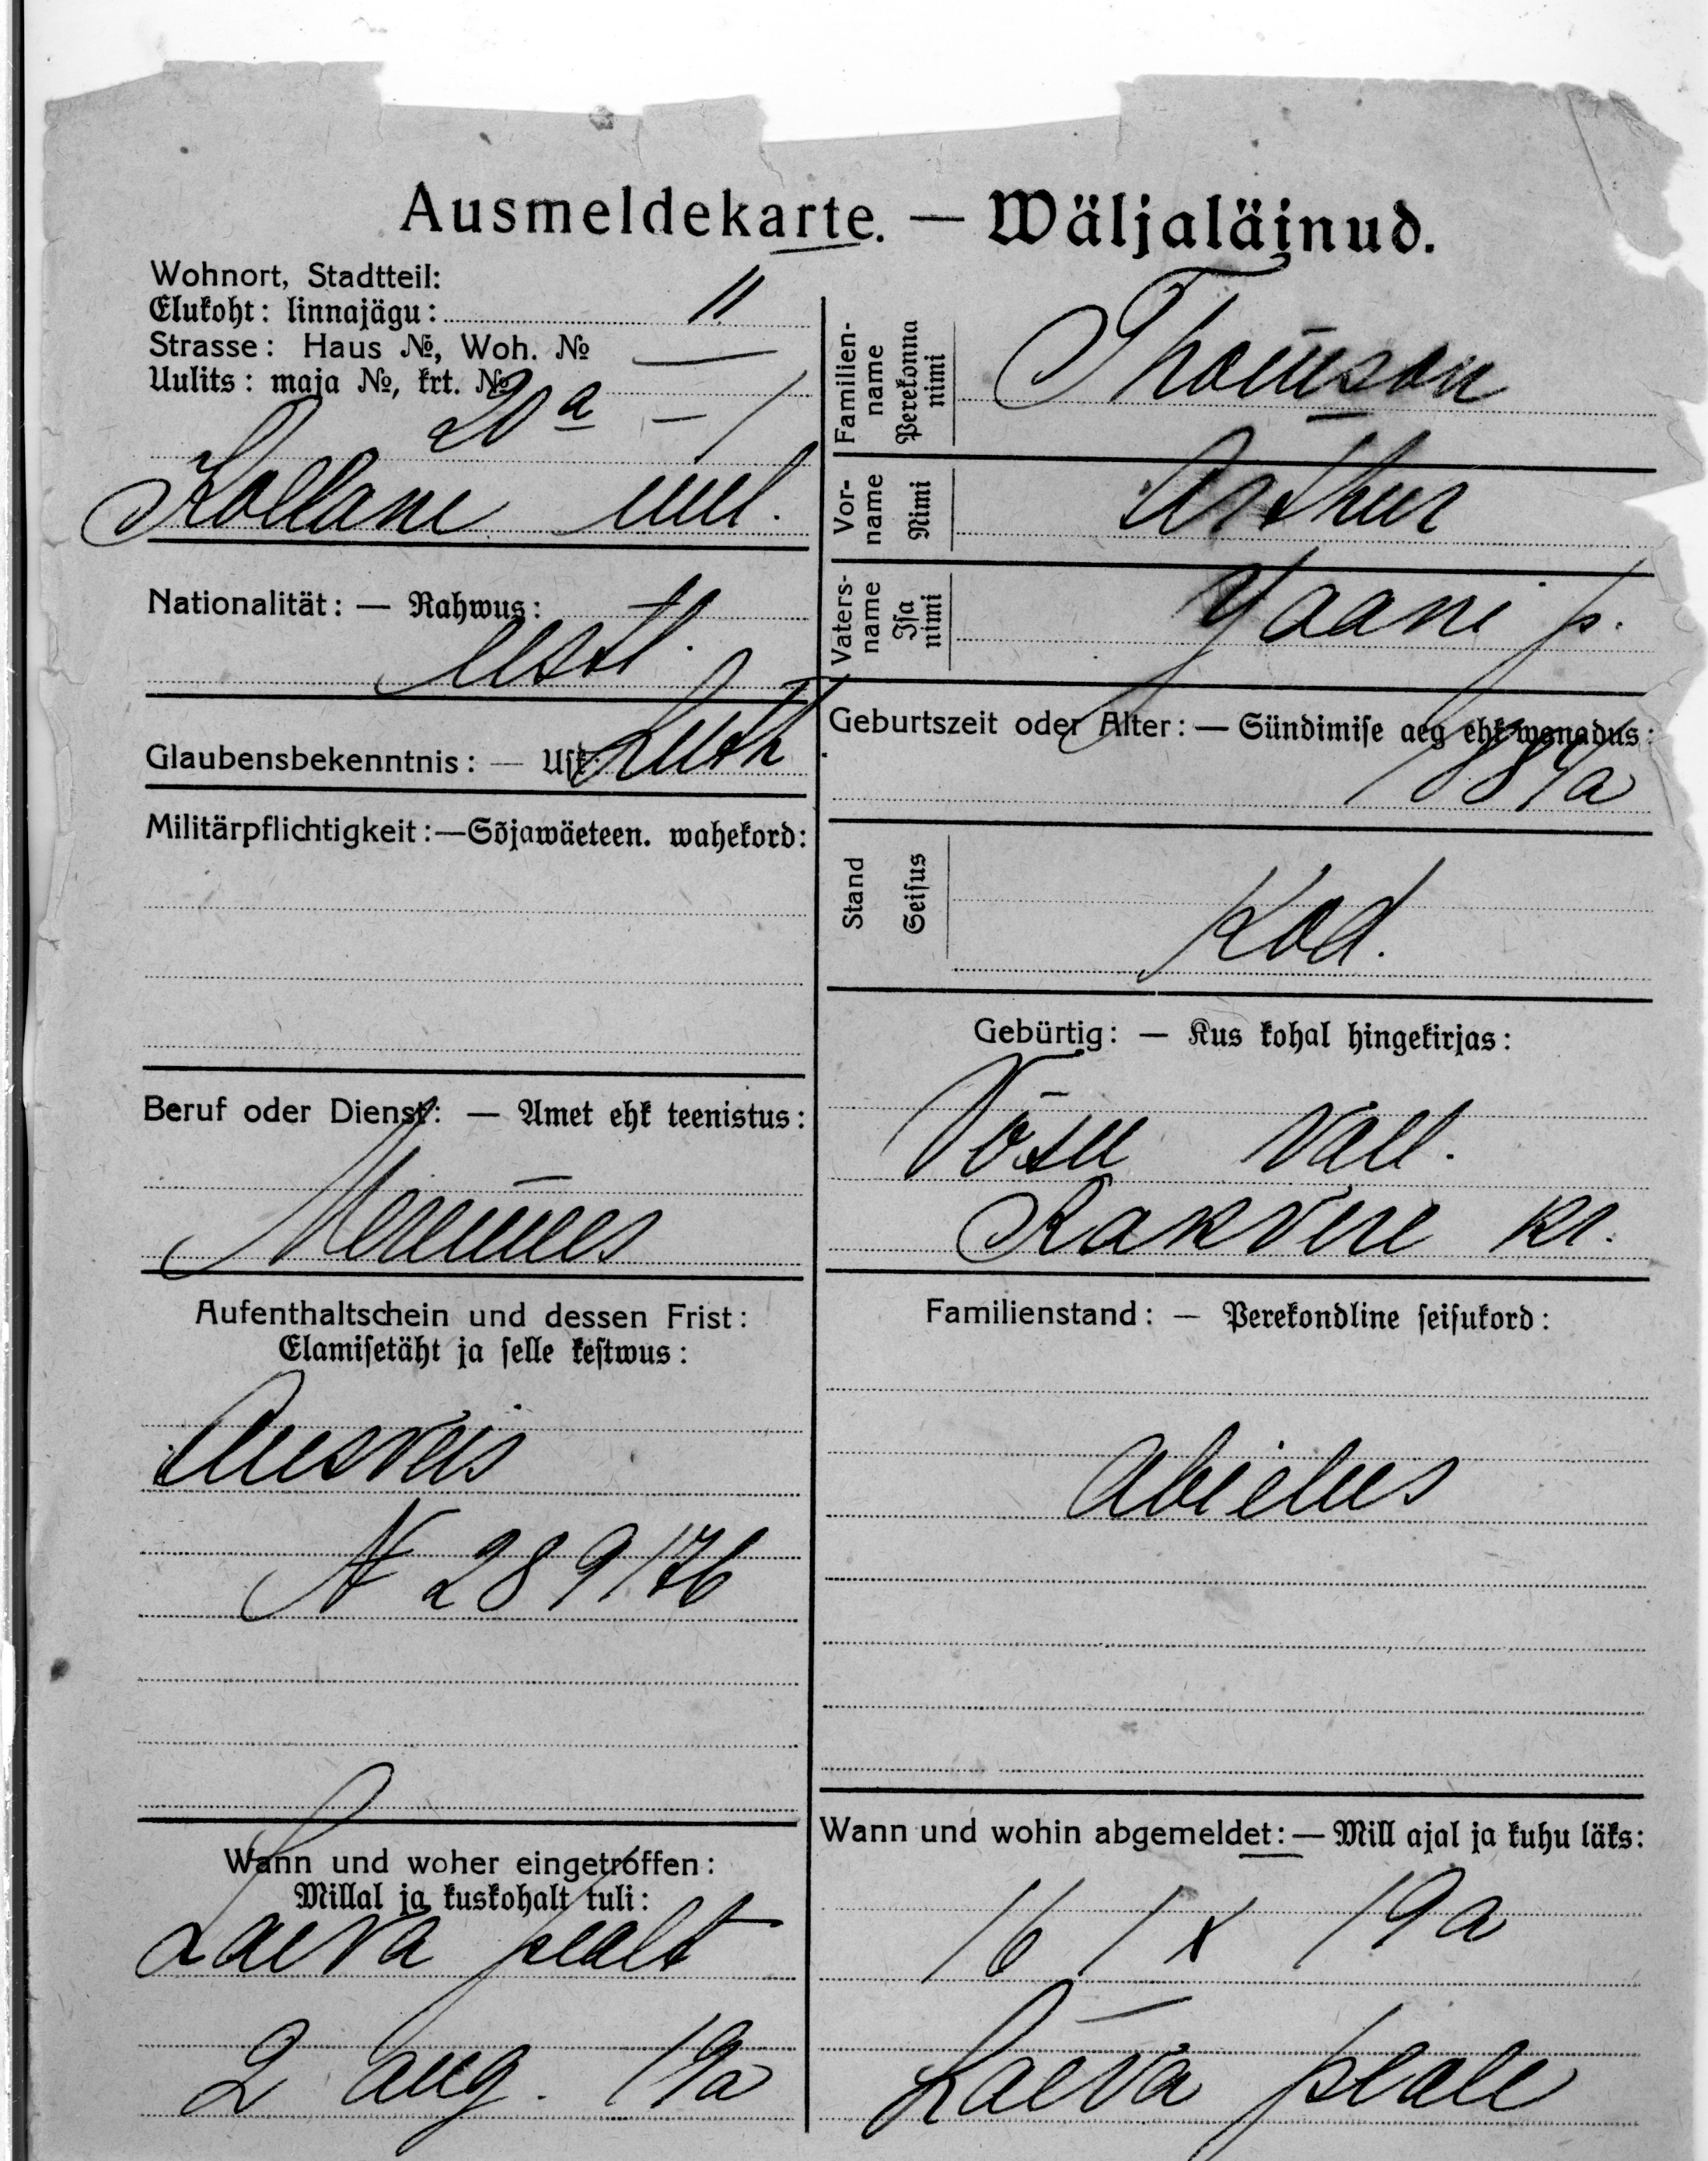 Ausmeldekarte. — Wäljaläinud.
Wohnort, Stadtteil:
Elukoht: linnajägu: 11
Strasse: Haus №, Woh. №
Uulits: maja №, krt. №
20a — 1
Kollane uul.
Nationalität: — Rahwus:
eestl.
Glaubensbekenntnis: — Usk: Luth.
Militärpflichtigkeit: — Sõjawäeteen. wahekord:
Beruf oder Dienst: — Amet ehk teenistus:
Meremees
Aufenthaltschein und dessen Frist:
Elamisetäht ja selle kestwus:
Ausveis
N 289176
Wann und woher eingetroffen:
Millal ja kuskohalt tuli:
Laeva pealt
2 aug. 19a
Familien-name Perekonna nimi Thomson
Vor-name Nimi Arthur
Vaters-name Isa nimi Jaani p.
Geburtszeit oder Alter: — Sündimise aeg ehk wanadus:
1884a
Stand Seisus Kod.
Gebürtig: — Kus kohal hingekirjas:
Võsu vall.
Rakvere kr.
Familienstand: — Perekondline seisukord:
Abielus
Wann und wohin abgemeldet: — Mill ajal ja kuhu läks:
16 IX 19a
Laeva peale